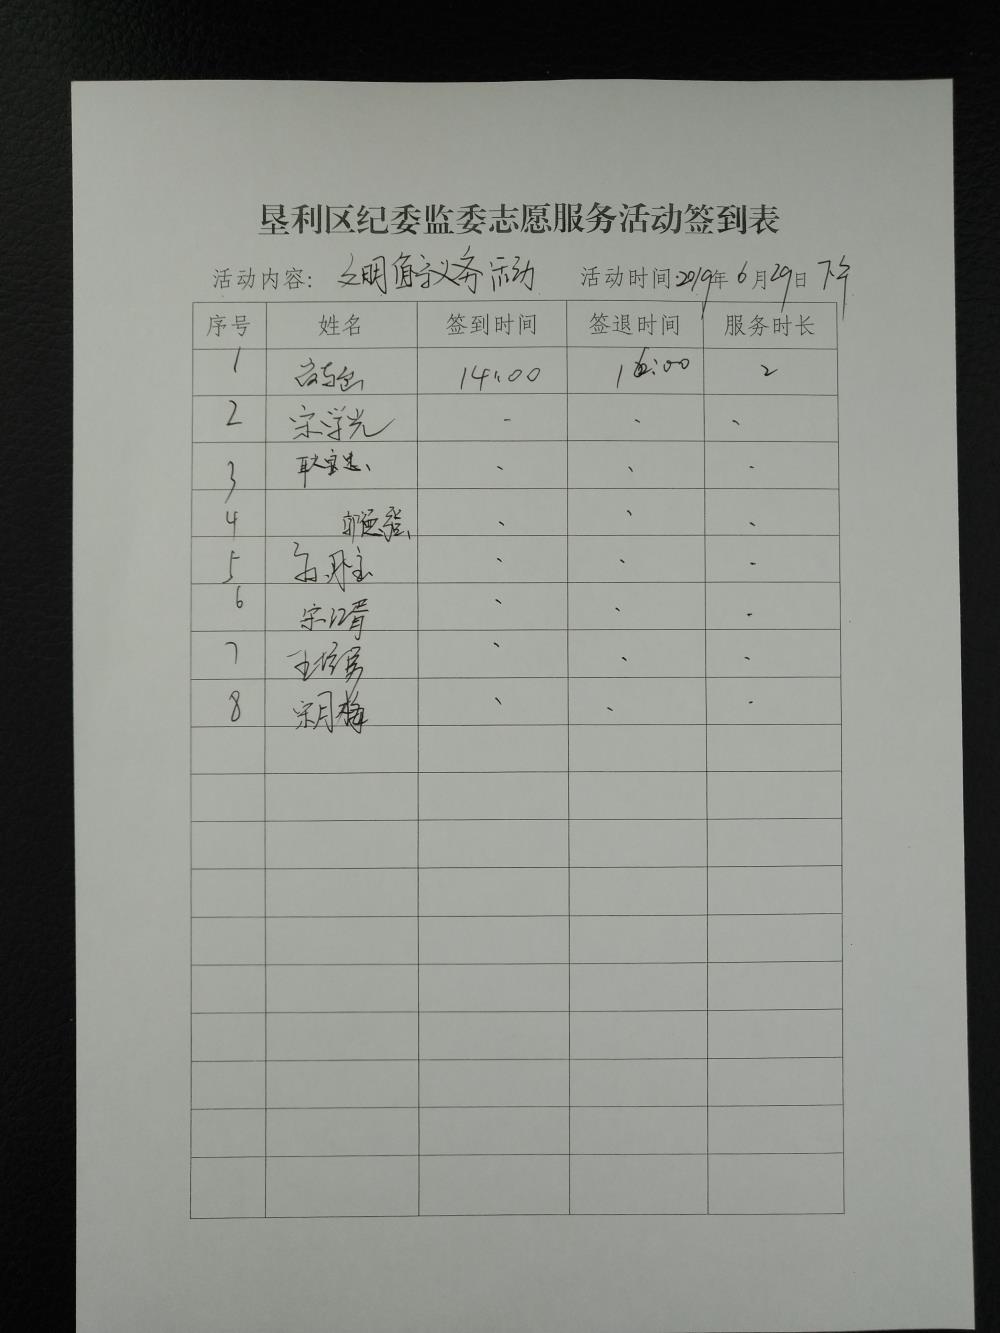 垦利区纪委监委志愿服务活动签到表
活动内容：文明值守义务活动 活动时间2019年6月29日下午
序号 姓名 签到时间 签退时间 服务时长
1 14:00 16:00 2
2 宋学光
3 耿宝忠
4 郭德
5
6 宋江霄
7 王培勇
8 宋月梅